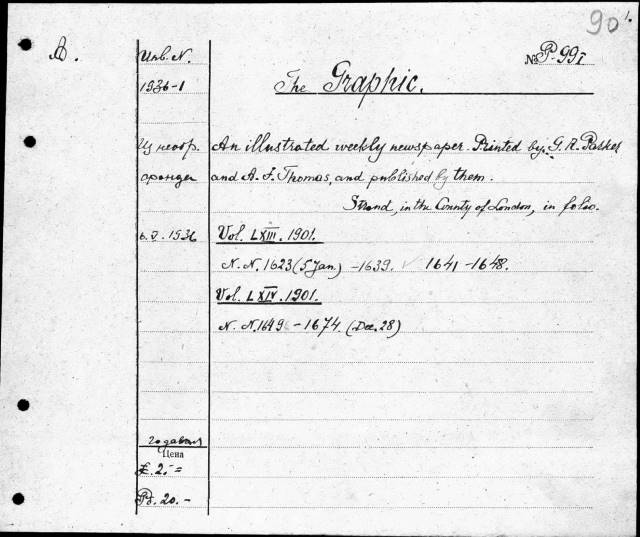 90
B. Инв. N. № P-991
1936-1 The Graphic.
Из необр. An illustrated weekly newspaper. Printed by G. R. Parker
фонда and A. F. Thomas, and published by them.
Strand, in the County of London, in folio.
6.I.1936 Vol. LXIII. 1901.
N.N. 1623 (5 Jan.) -1639. ✓ 1641-1648.
Vol. LXIV. 1901.
N.N. 1649-1674. (Dec. 28)
Цена
£. 2.-=
20.-